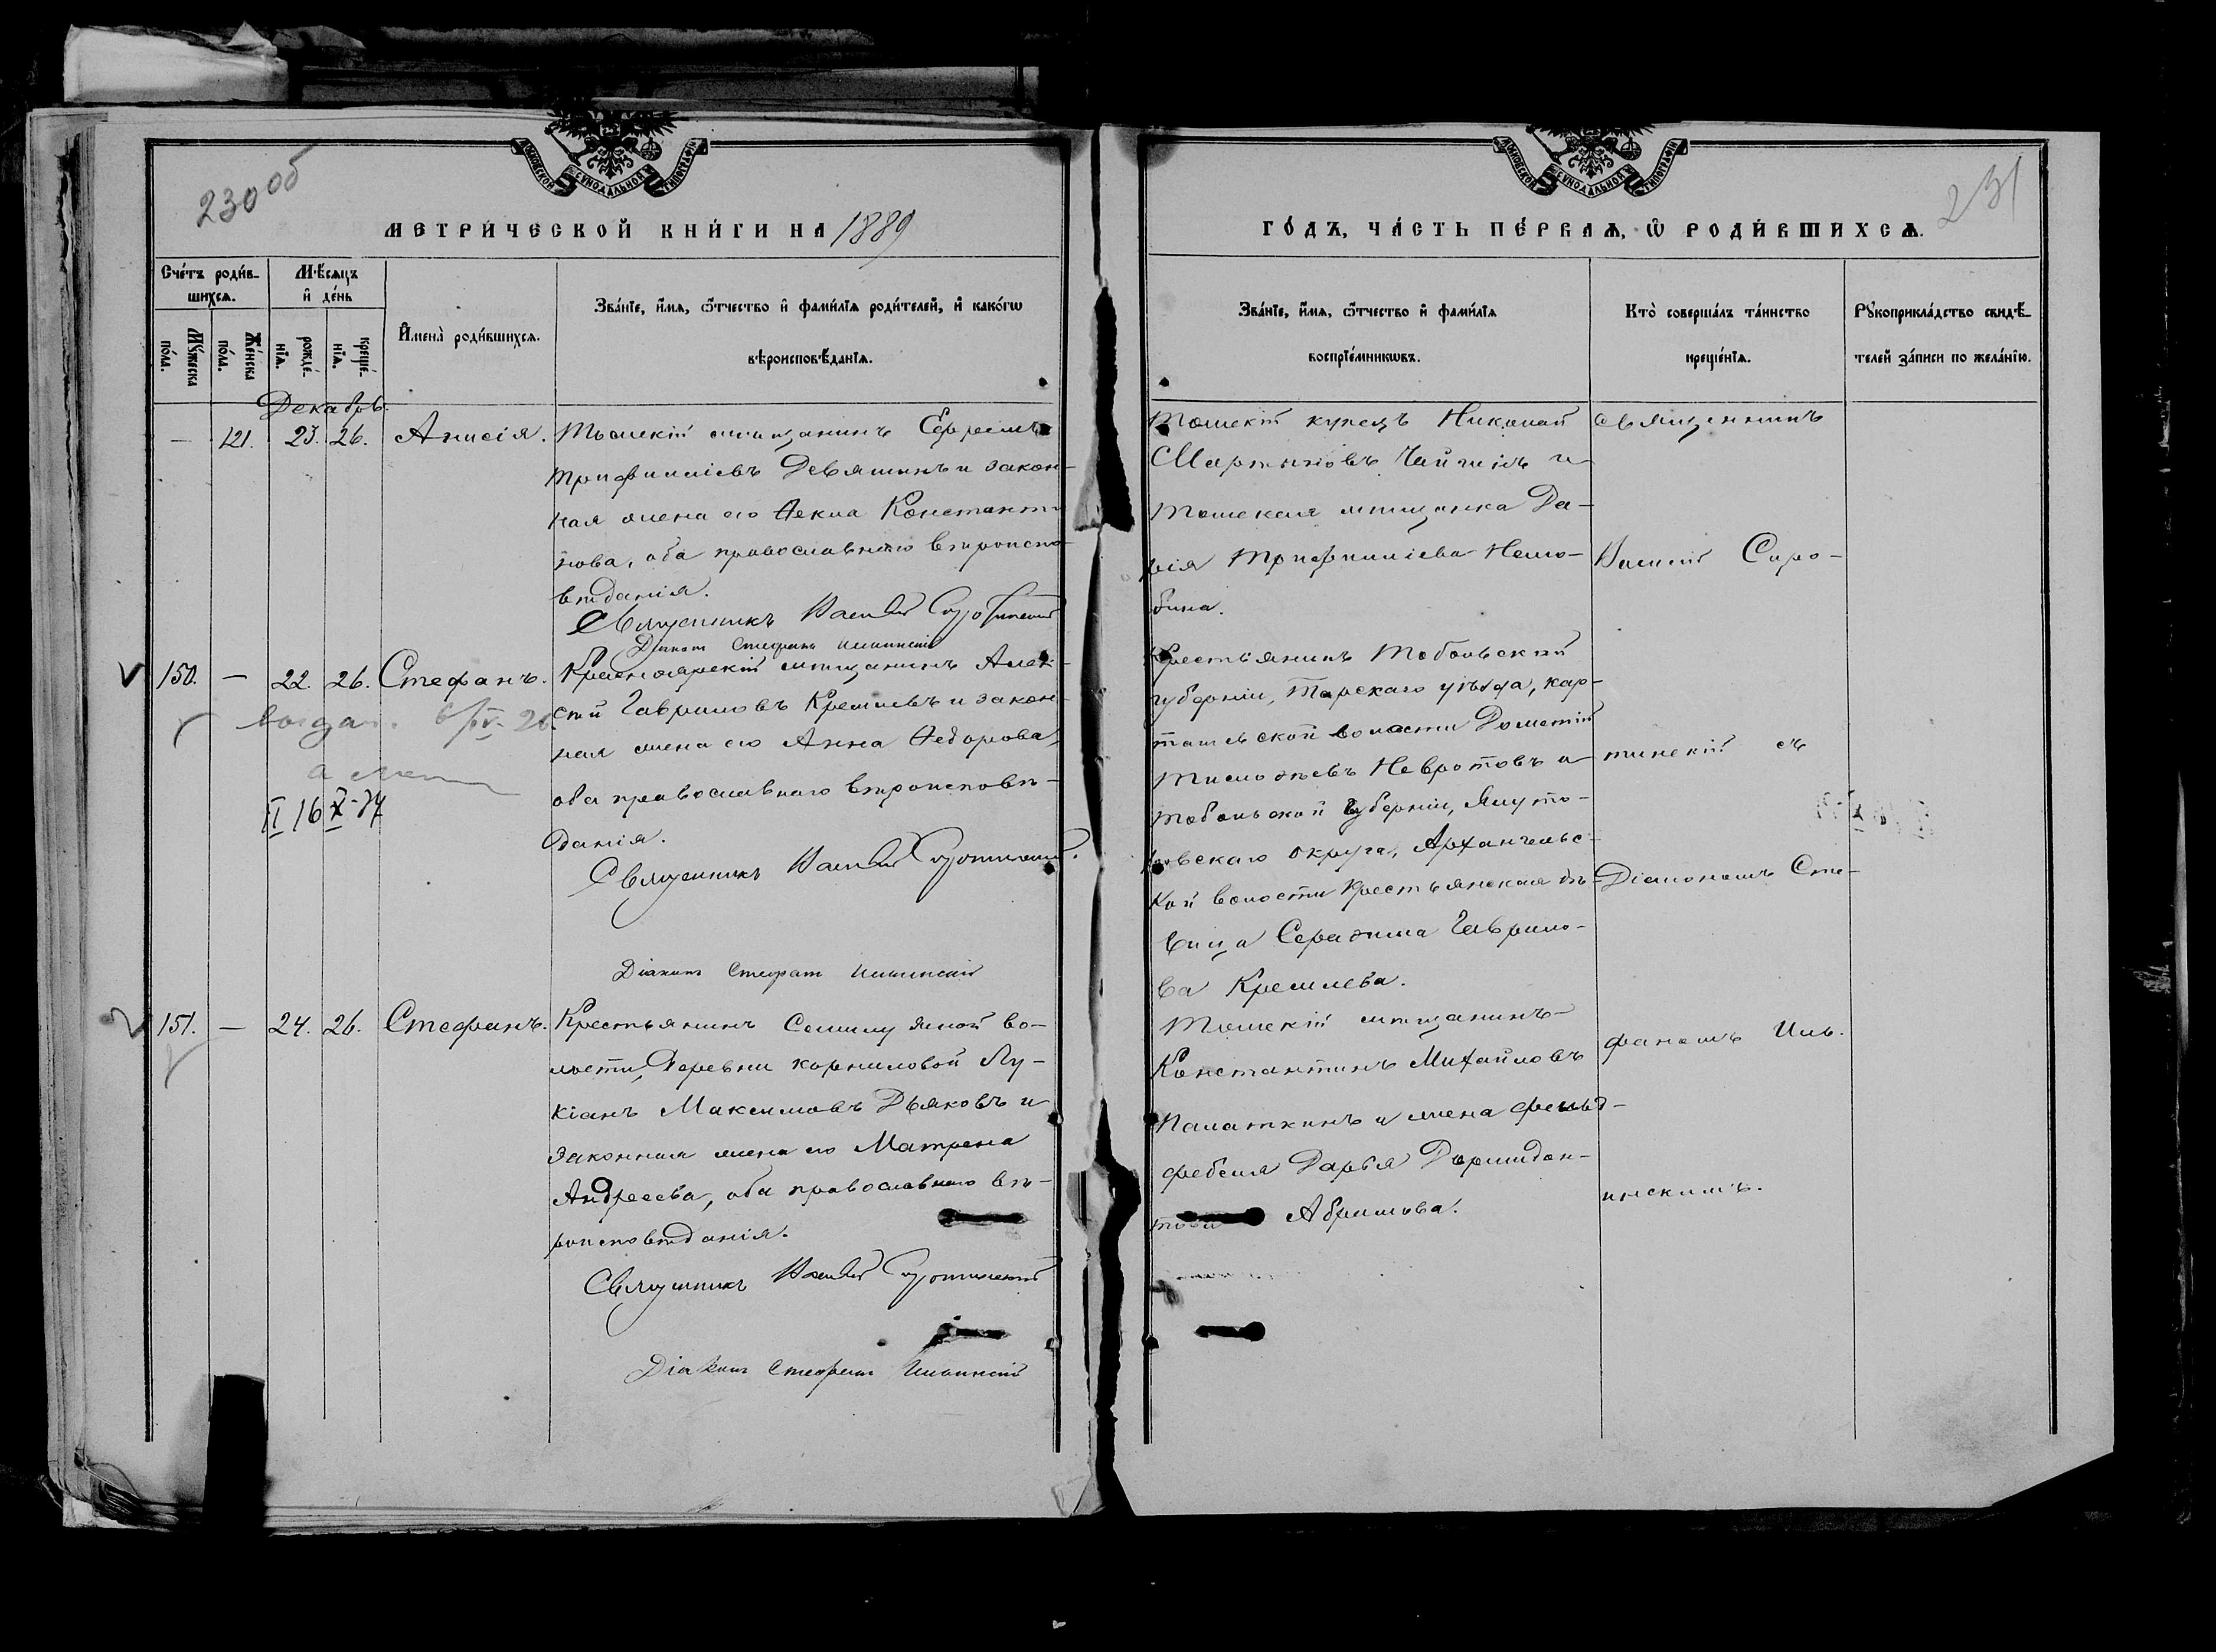 230 об
231
МОСКОВСКОЙ СУНОДАЛЬНОЙ ТИПОГРАФІИ
МОСКОВСКОЙ СУНОДАЛЬНОЙ ТИПОГРАФІИ
МЕТРИ́ЧЕСКОЙ КНИ́ГИ НА 1889
ГО́ДЪ, ЧА́СТЬ ПЕ́РВАѦ, Ѡ РОДИ́ВШИХСѦ.
Сче́тъ роди́в-
шихсѧ.
Мꙋ́жеска
по́ла.
Же́нска
по́ла.
Мѣ́сѧцъ
и҆ де́нь
рожде́-
нїѧ.
креще́-
нїѧ.
И҆мена̀ роди́вшихсѧ.
Зва́нїе, и҆́мѧ, ѻ҆́тчество и҆ фами́лїѧ роди́телей, и҆ како́гѡ
вѣроисповѣ́данїѧ.
Зва́нїе, и҆́мѧ, ѻ҆́тчество и҆ фами́лїѧ
воспрїе́мникѡвъ.
Кто̀ соверша́лъ та́инство
креще́нїѧ.
Рꙋкоприкла́дство свидѣ́-
телей за́писи по жела́нїю.
Декабрь.
— 121. 23. 26. Анисія.
Томскій мѣщанинъ Ефремъ
Трифиліевъ Девяшинъ и закон-
ная жена его Ѳекла Константи-
нова, оба православнаго вѣроиспо-
вѣданія.
Священникъ Василій Сиротинскій
Діаконъ Стефанъ Ильинскій
Томскій купецъ Николай
Мартиновъ и
Томская мѣщанка Да-
рія Трифиліева Нело-
бина.
150. — 22. 26. Стефанъ.
6/IV-26.
II 16 X-37
Красноярскій мѣщанинъ Алек-
сѣй Гавриловъ Кремлевъ и закон-
ная жена его Анна Ѳедорова,
оба православнаго вѣроисповѣ-
данія.
Священникъ Василій Сиротинскій.
Діаконъ Стефанъ Ильинскій
Крестьянинъ Тобольской
губерніи, Тарскаго уѣзда, кар-
ташевской волости Дометій
Тимоѳеевъ Невротовъ и
Тобольской губерніи, Ялуто-
ровскаго округа, Архангельс-
кой волости крестьянская дѣ-
вица Серафима Гаврило-
ва Кремлева.
151. — 24. 26. Стефанъ.
Крестьянинъ Семилужной во-
лости, Деревни корниловой Лу-
кіанъ Максимовъ Дьяковъ и
законная жена его Матрена
Андреева, оба православнаго вѣ-
роисповѣданія.
Священникъ Василій Сиротинскій
Діаконъ Стефанъ Ильинскій
Томскій мѣщанинъ
Константинъ Михайловъ
Палаткинъ и жена фельд-
фебеля Дарья Дормидон-
това Абрамова.
священникъ
Василій Сиро-
тинскій съ
Діакономъ Сте-
фаномъ Иль-
инскимъ.